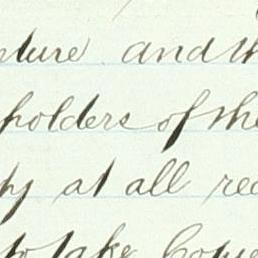 nture and th
holders of the
by at all rea
to take Copie